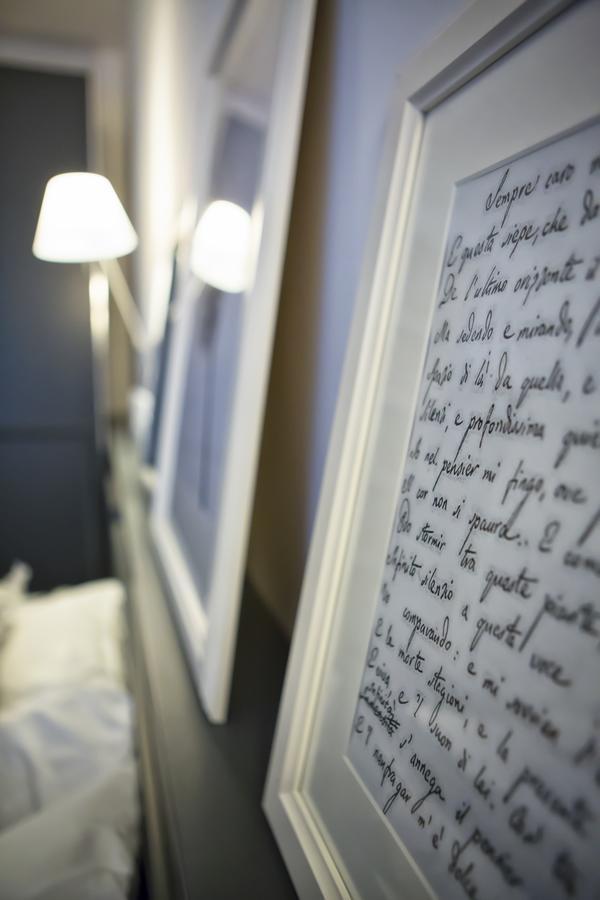 Sempre caro m
E questa siepe, che da
De l'ultimo orizzonte il
Ma sedendo e mirando, i
spazio di là da quella, e
silenzi, e profondissima quie
Io nel pensier mi fingo, ove
il cor non si spaura. E come
Odo stormir tra queste piante
infinito silenzio a questa voce
Vo comparando: e mi sovvien l'e
E le morte stagioni, e la presente
E viva, e 'l suon di lei. Così tra
s'annega il pensier
E 'l naufragar m'è dolce